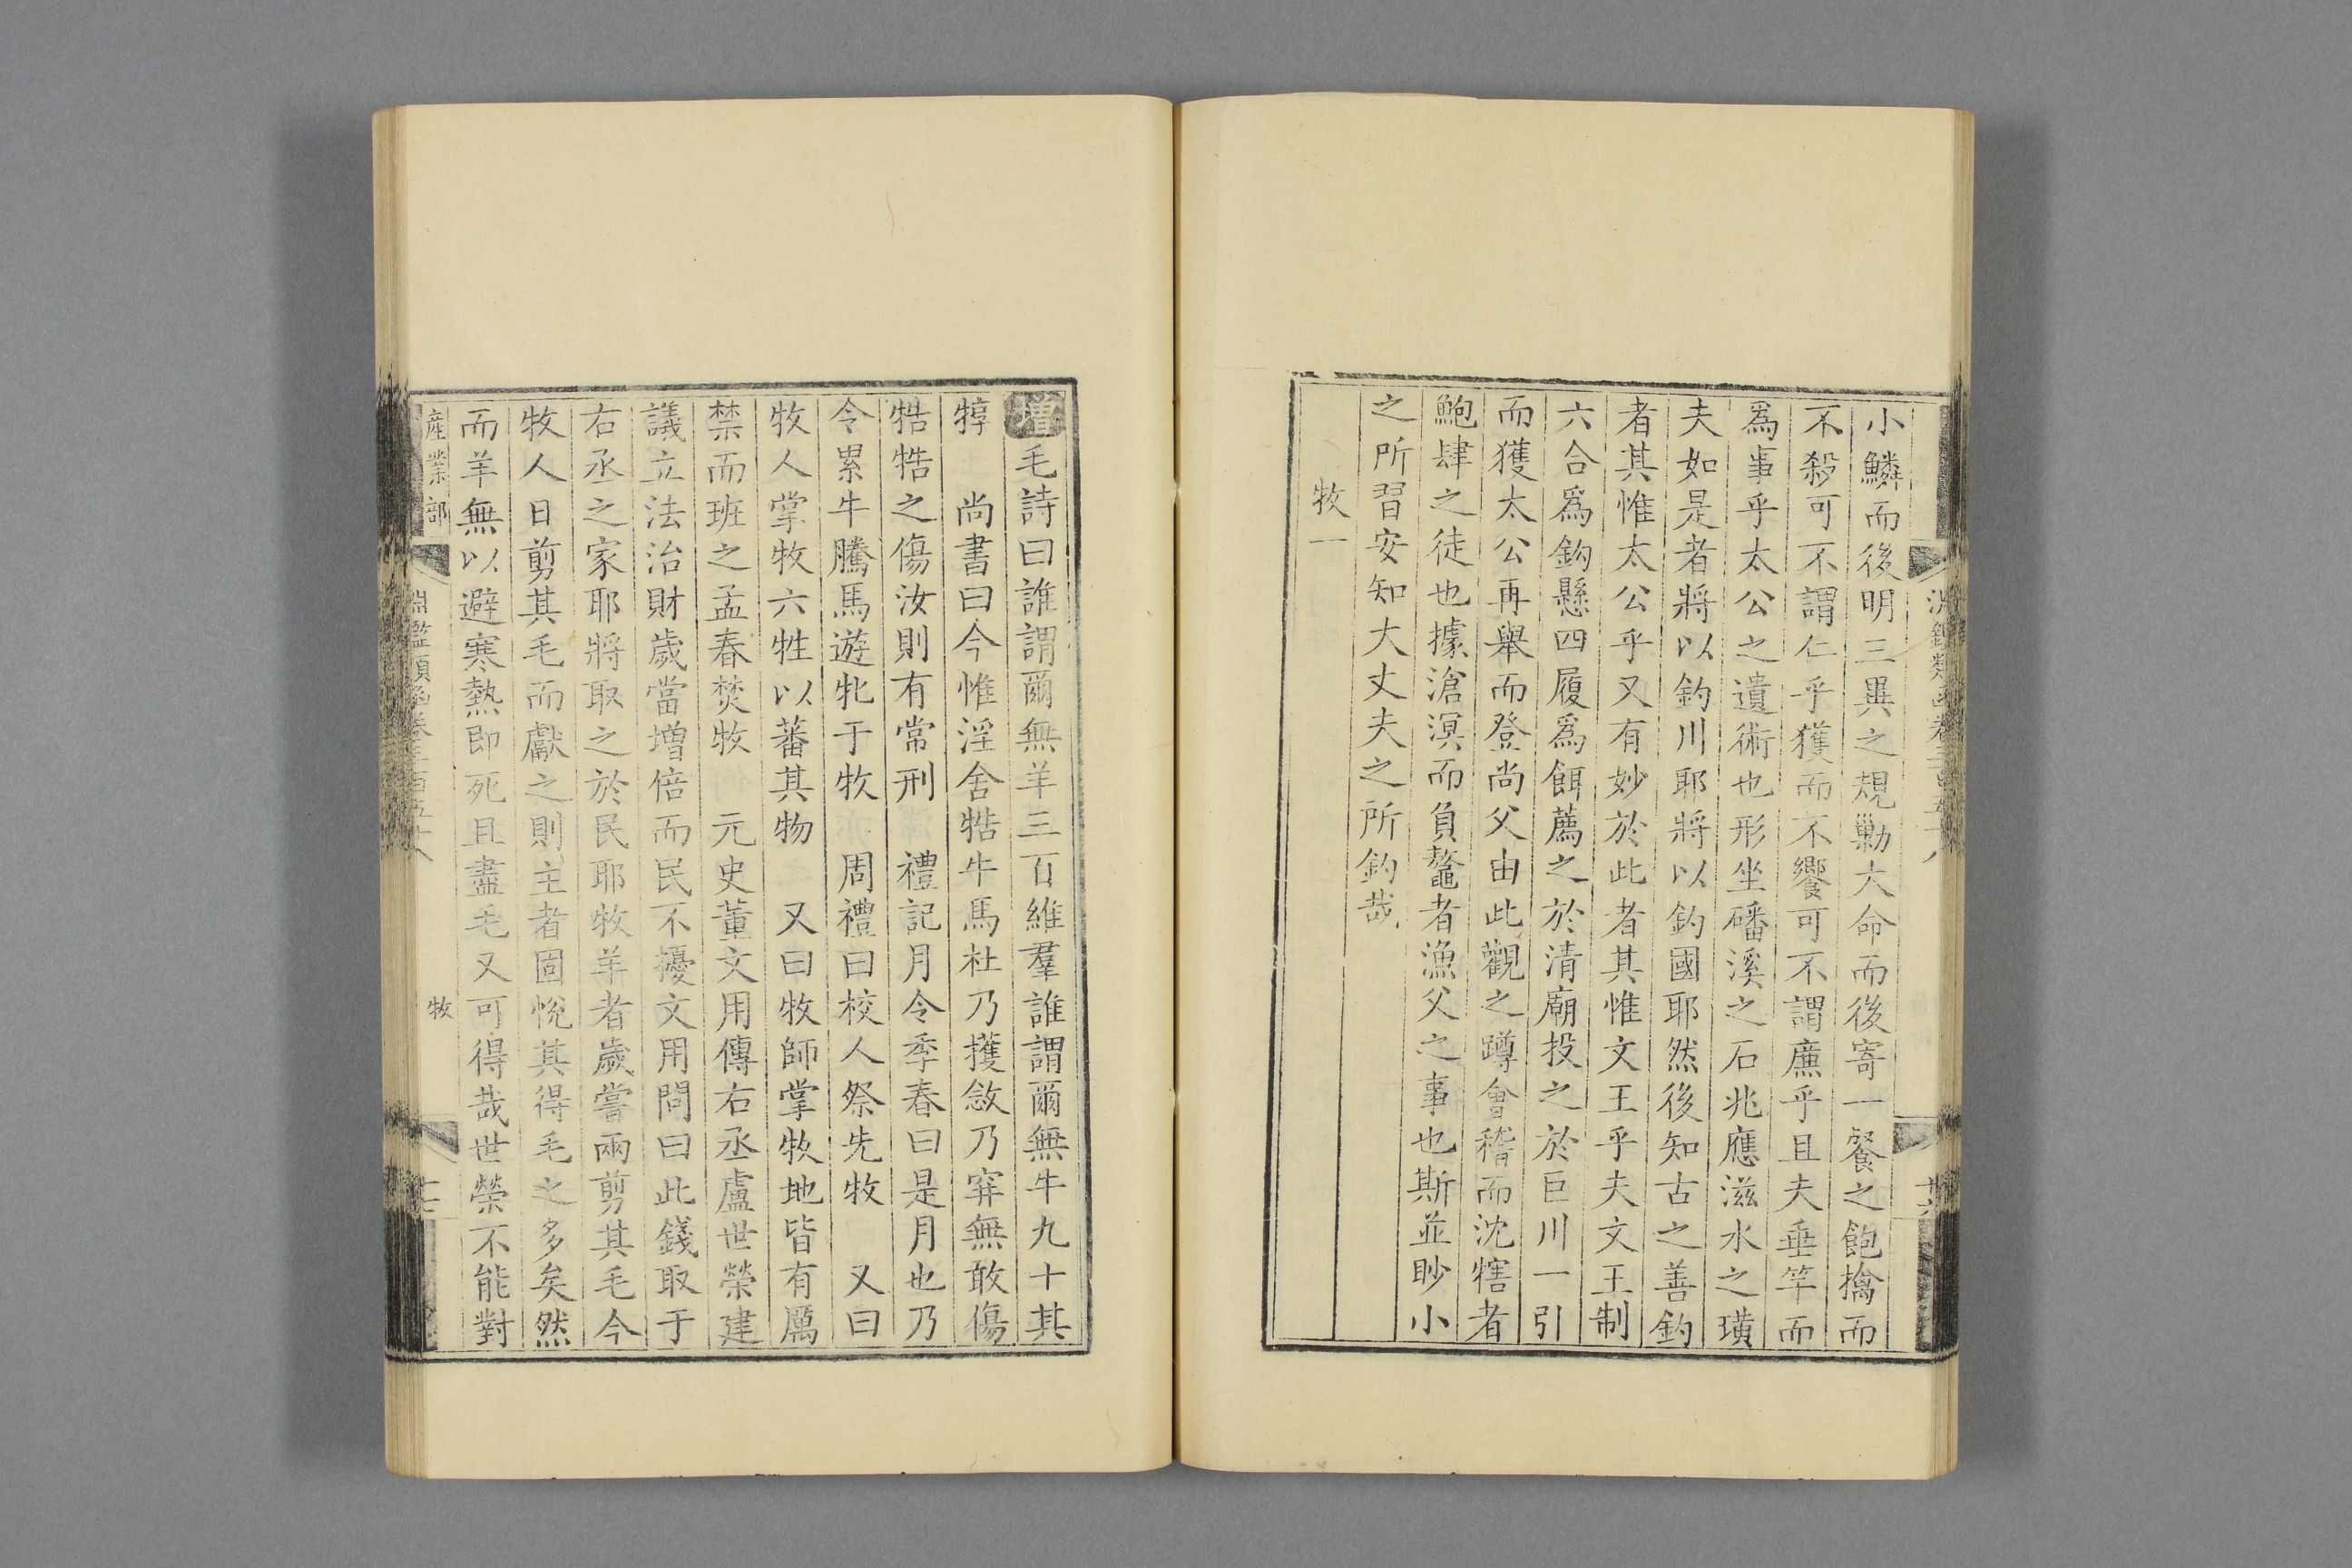 小鱗而後明三異之規勦大命而後寄一餐之飽擒而
不殺可不謂仁乎獲而不饗可不謂廉乎且夫垂竿而
爲事乎太公之遺術也形坐磻溪之石兆應滋水之璜
夫如是者將以釣川耶將以釣國耶然後知古之善釣
者其惟太公乎又有妙於此者其惟文王乎夫文王制
六合爲鈎懸四履爲餌薦之於清廟投之於巨川一引
而獲太公再舉而登尚父由此觀之蹲會稽而沈犗者
鮑肆之徒也據滄溟而負鼇者漁父之事也斯並眇小
之所習安知大丈夫之所釣哉
牧一
增毛詩曰誰謂爾無羊三百維羣誰謂爾無牛九十其
犉 尚書曰今惟淫舍牿牛馬杜乃擭敜乃穽無敢傷
牿牿之傷汝則有常刑 禮記月令季春曰是月也乃
令累牛騰馬遊牝于牧 周禮曰校人祭先牧 又曰
牧人掌牧六牲以蕃其物 又曰牧師掌牧地皆有厲
禁而班之孟春焚牧 元史董文用傳右丞盧世榮建
議立法治財歲當增倍而民不擾文用問曰此錢取于
右丞之家耶將取之於民耶牧羊者歲嘗兩剪其毛今
牧人日剪其毛而獻之則主者固悅其得毛之多矣然
而羊無以避寒熱即死且盡毛又可得哉世榮不能對
產業部 淵鑑類函卷三百五十八 牧